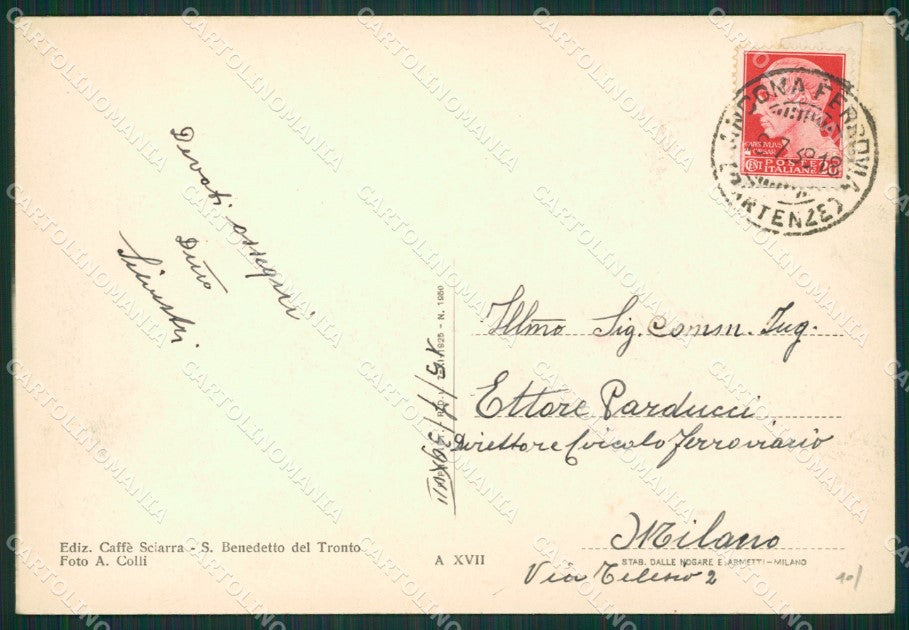 Devoti ossequi
Dino
Silvestri.
Ediz. Caffè Sciarra - S. Benedetto del Tronto
Foto A. Colli
A XVII
N. 1950
ANCONA FERROVIA
(PARTENZE)
CENT 20
POSTE
ITALIANE
Illmo Sig. Comm. Ing.
Ettore Parducci
Direttore Circolo Ferroviario
Milano
STAB. DALLE NOGARE E ARMETTI - MILANO
Via Telesio 2
CARTOLINOMANIA